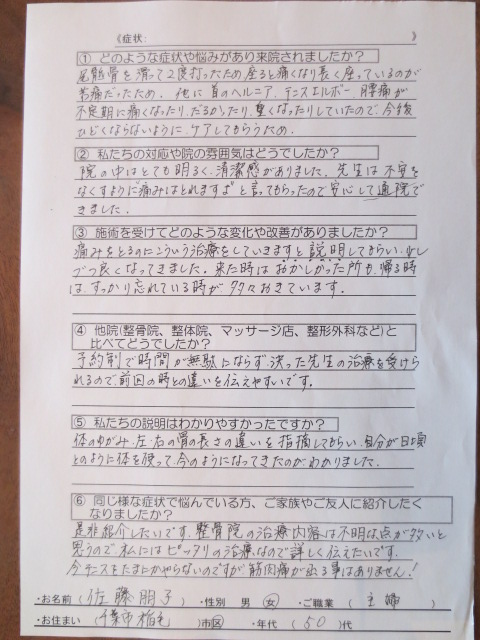 《症状:　》
① どのような症状や悩みがあり来院されましたか?
尾骶骨を滑って2度打ったため座ると痛くなり長く座っているのが
苦痛だったため。他に首のヘルニア、テニスエルボー、腰痛が
不定期に痛くなったり、だるかったり、重くなったりしていたので、今後
ひどくならないように、ケアしてもらうため。
② 私たちの対応や院の雰囲気はどうでしたか?
院の中はとても明るく、清潔感がありました。先生は不安を
なくすように"痛みはとれますよ"と言ってもらったので安心して通院で
きました。
③ 施術を受けてどのような変化や改善がありましたか?
痛みをとるのにこういう治療をしていきますと説明してもらい、少し
づつ良くなってきました。来た時はおかしかった所も、帰る時
は、すっかり忘れている時が多々おきています。
④ 他院(整骨院、整体院、マッサージ店、整形外科など)と
比べてどうでしたか?
予約制で時間が無駄にならず、決った先生の治療を受けら
れるので、前回の時との違いを伝えやすいです。
⑤ 私たちの説明はわかりやすかったですか?
体のゆがみ、左右の骨の長さの違いを指摘してもらい、自分が日頃
どのように体を使って今のようになってきたのがわかりました。
⑥ 同じ様な症状で悩んでいる方、ご家族やご友人に紹介したく
なりましたか?
是非紹介したいです。整骨院の治療内容は不明な点が多いと
思うので、私にはピッタリの治療なので詳しく伝えたいです。
今テニスをたまにかやらないのですが筋肉痛が出る事はありません!
・お名前(佐藤朋子)・性別 男 女・ご職業(主婦)
・お住まい(千葉市稲毛)市区・年代(50)代